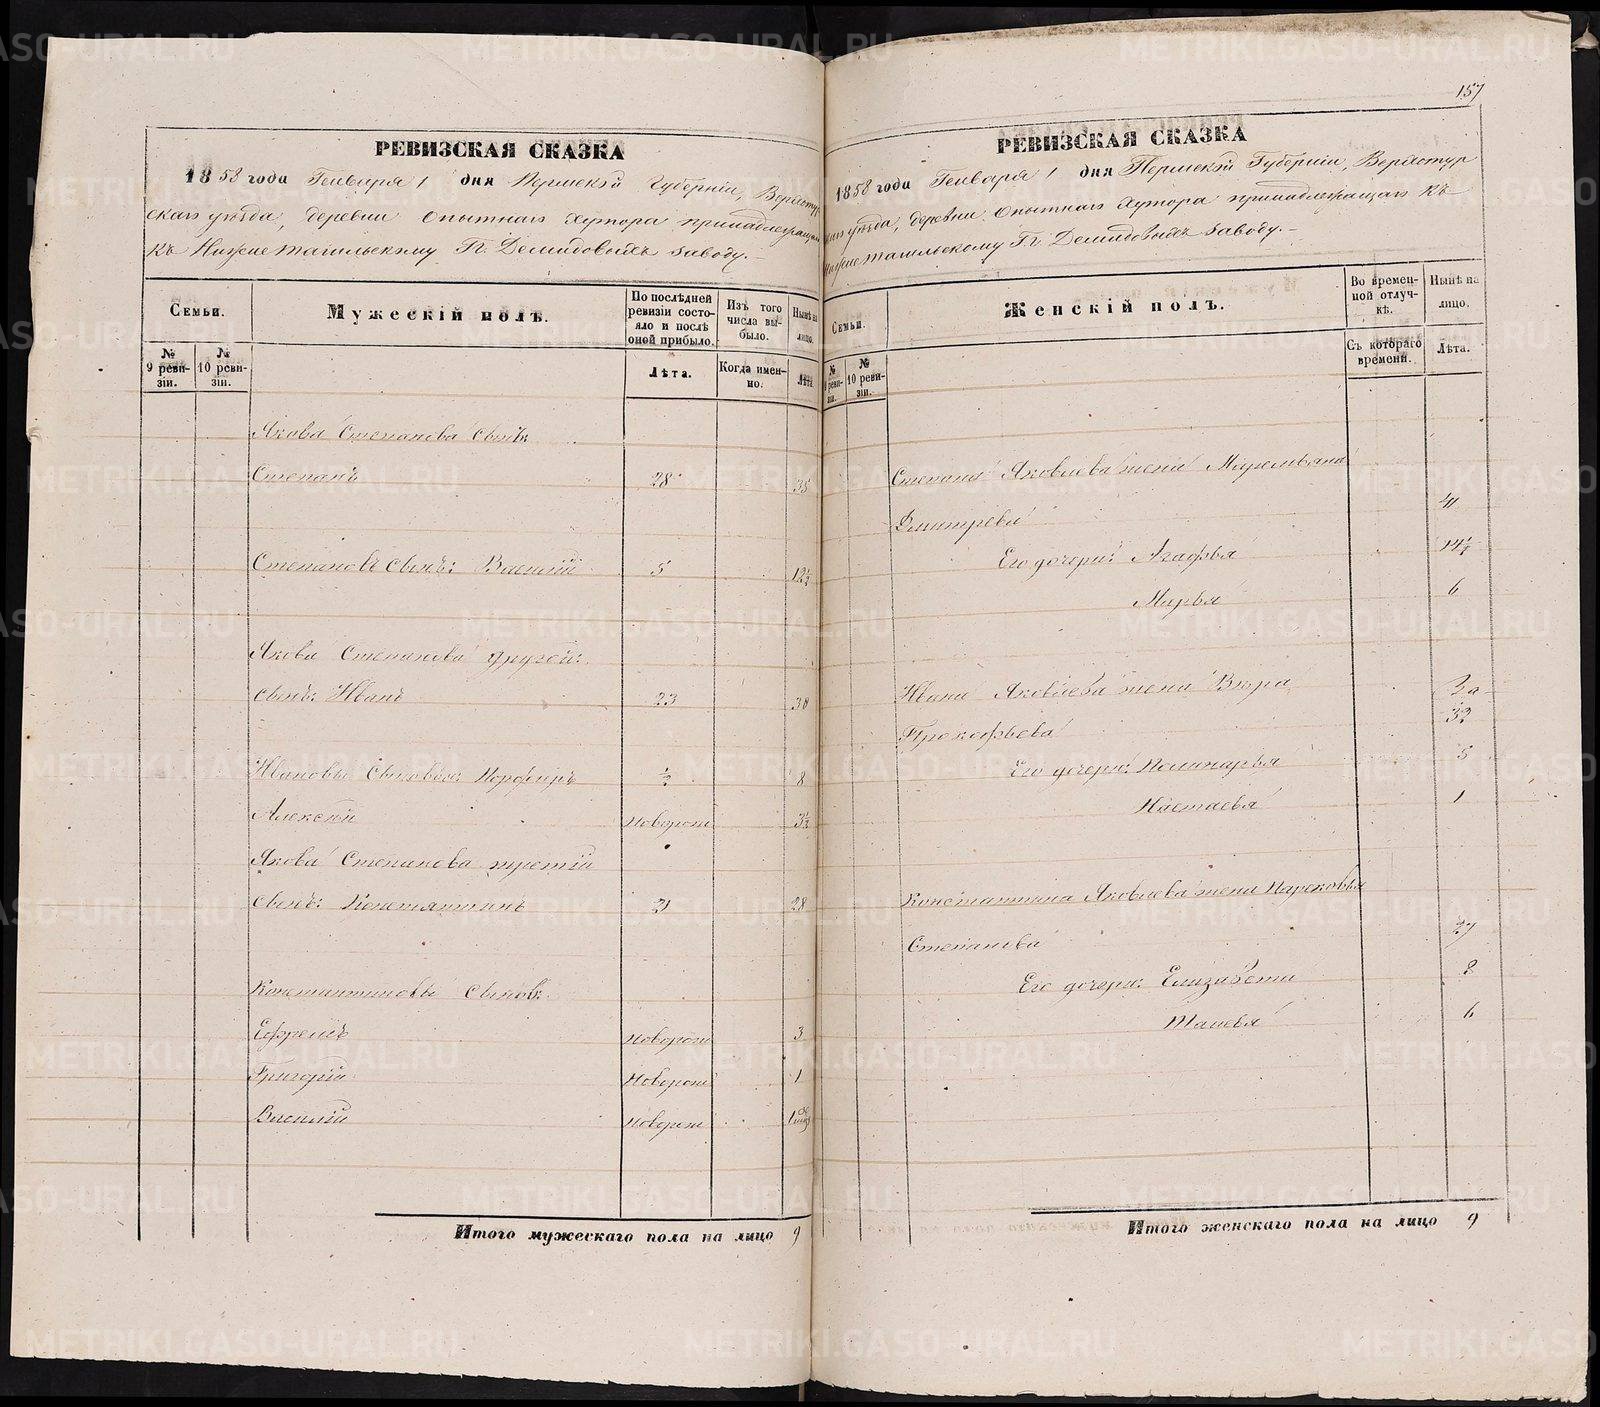 157
РЕВИЗСКАЯ СКАЗКА
1858 года Генваря 1 дня Пермской Губерніи, Верхотур
скаго уѣзда, деревни Опытнаго Хутора принадлежащаго
къ Нижнетагильскому Гг. Демидовыхъ заводу.
Семьи.
Мужескій полъ.
По послѣдней ревизіи состояло и послѣ оной прибыло.
Изъ того числа выбыло.
Нынѣ на лицо.
№ 9 ревизіи.
№ 10 ревизіи.
Лѣта.
Когда именно.
Лѣта
Якова Степанова сынъ
Степанъ 28 35
Степановъ сынъ: Василій 5 12½
Якова Степанова другой
сынъ: Иванъ 23 30
Ивановы сыновья: Порфиръ ½ 8
Алексѣй новорож 3½
Якова Степанова третій
сынъ: Константинъ 21 28
Константиновы сыновья
Ефремъ новорож 3
Григорій новорож 1
Василій новорож
Итого мужескаго пола на лицо 9
РЕВИЗСКАЯ СКАЗКА
1858 года Генваря 1 дня Пермской Губерніи, Верхотур
скаго уѣзда, деревни Опытнаго Хутора принадлежащаго къ
Нижнетагильскому Гг. Демидовыхъ заводу.
Семьи.
Женскій полъ.
Во временной отлучкѣ.
Нынѣ на лицо.
№ 9 ревизіи.
№ 10 ревизіи.
Съ котораго времени.
Лѣта.
Степана Яковлева жена Маремьяна
Дмитрева 41
Его дочери: Агафья 14½
Марья 6
Ивана Яковлева жена Вѣра
Прокофьева 32
Его дочери: Полинарья 5
Настасья 1
Константина Яковлева жена Парсковья
Степанова 27
Его дочери: Елизавета 8
Татьяна 6
Итого женскаго пола на лицо 9
METRIKI.GASO-URAL.RU